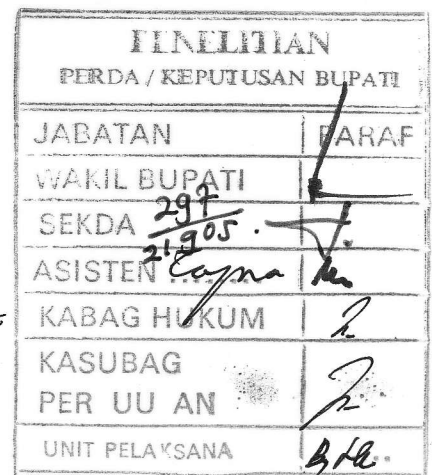 PENELITIAN
PERDA / KEPUTUSAN BUPATI
JABATAN PARAF
WAKIL BUPATI
SEKDA 297
21 9 05.
ASISTEN ..........
KABAG HUKUM
KASUBAG
PER UU AN
UNIT PELAKSANA